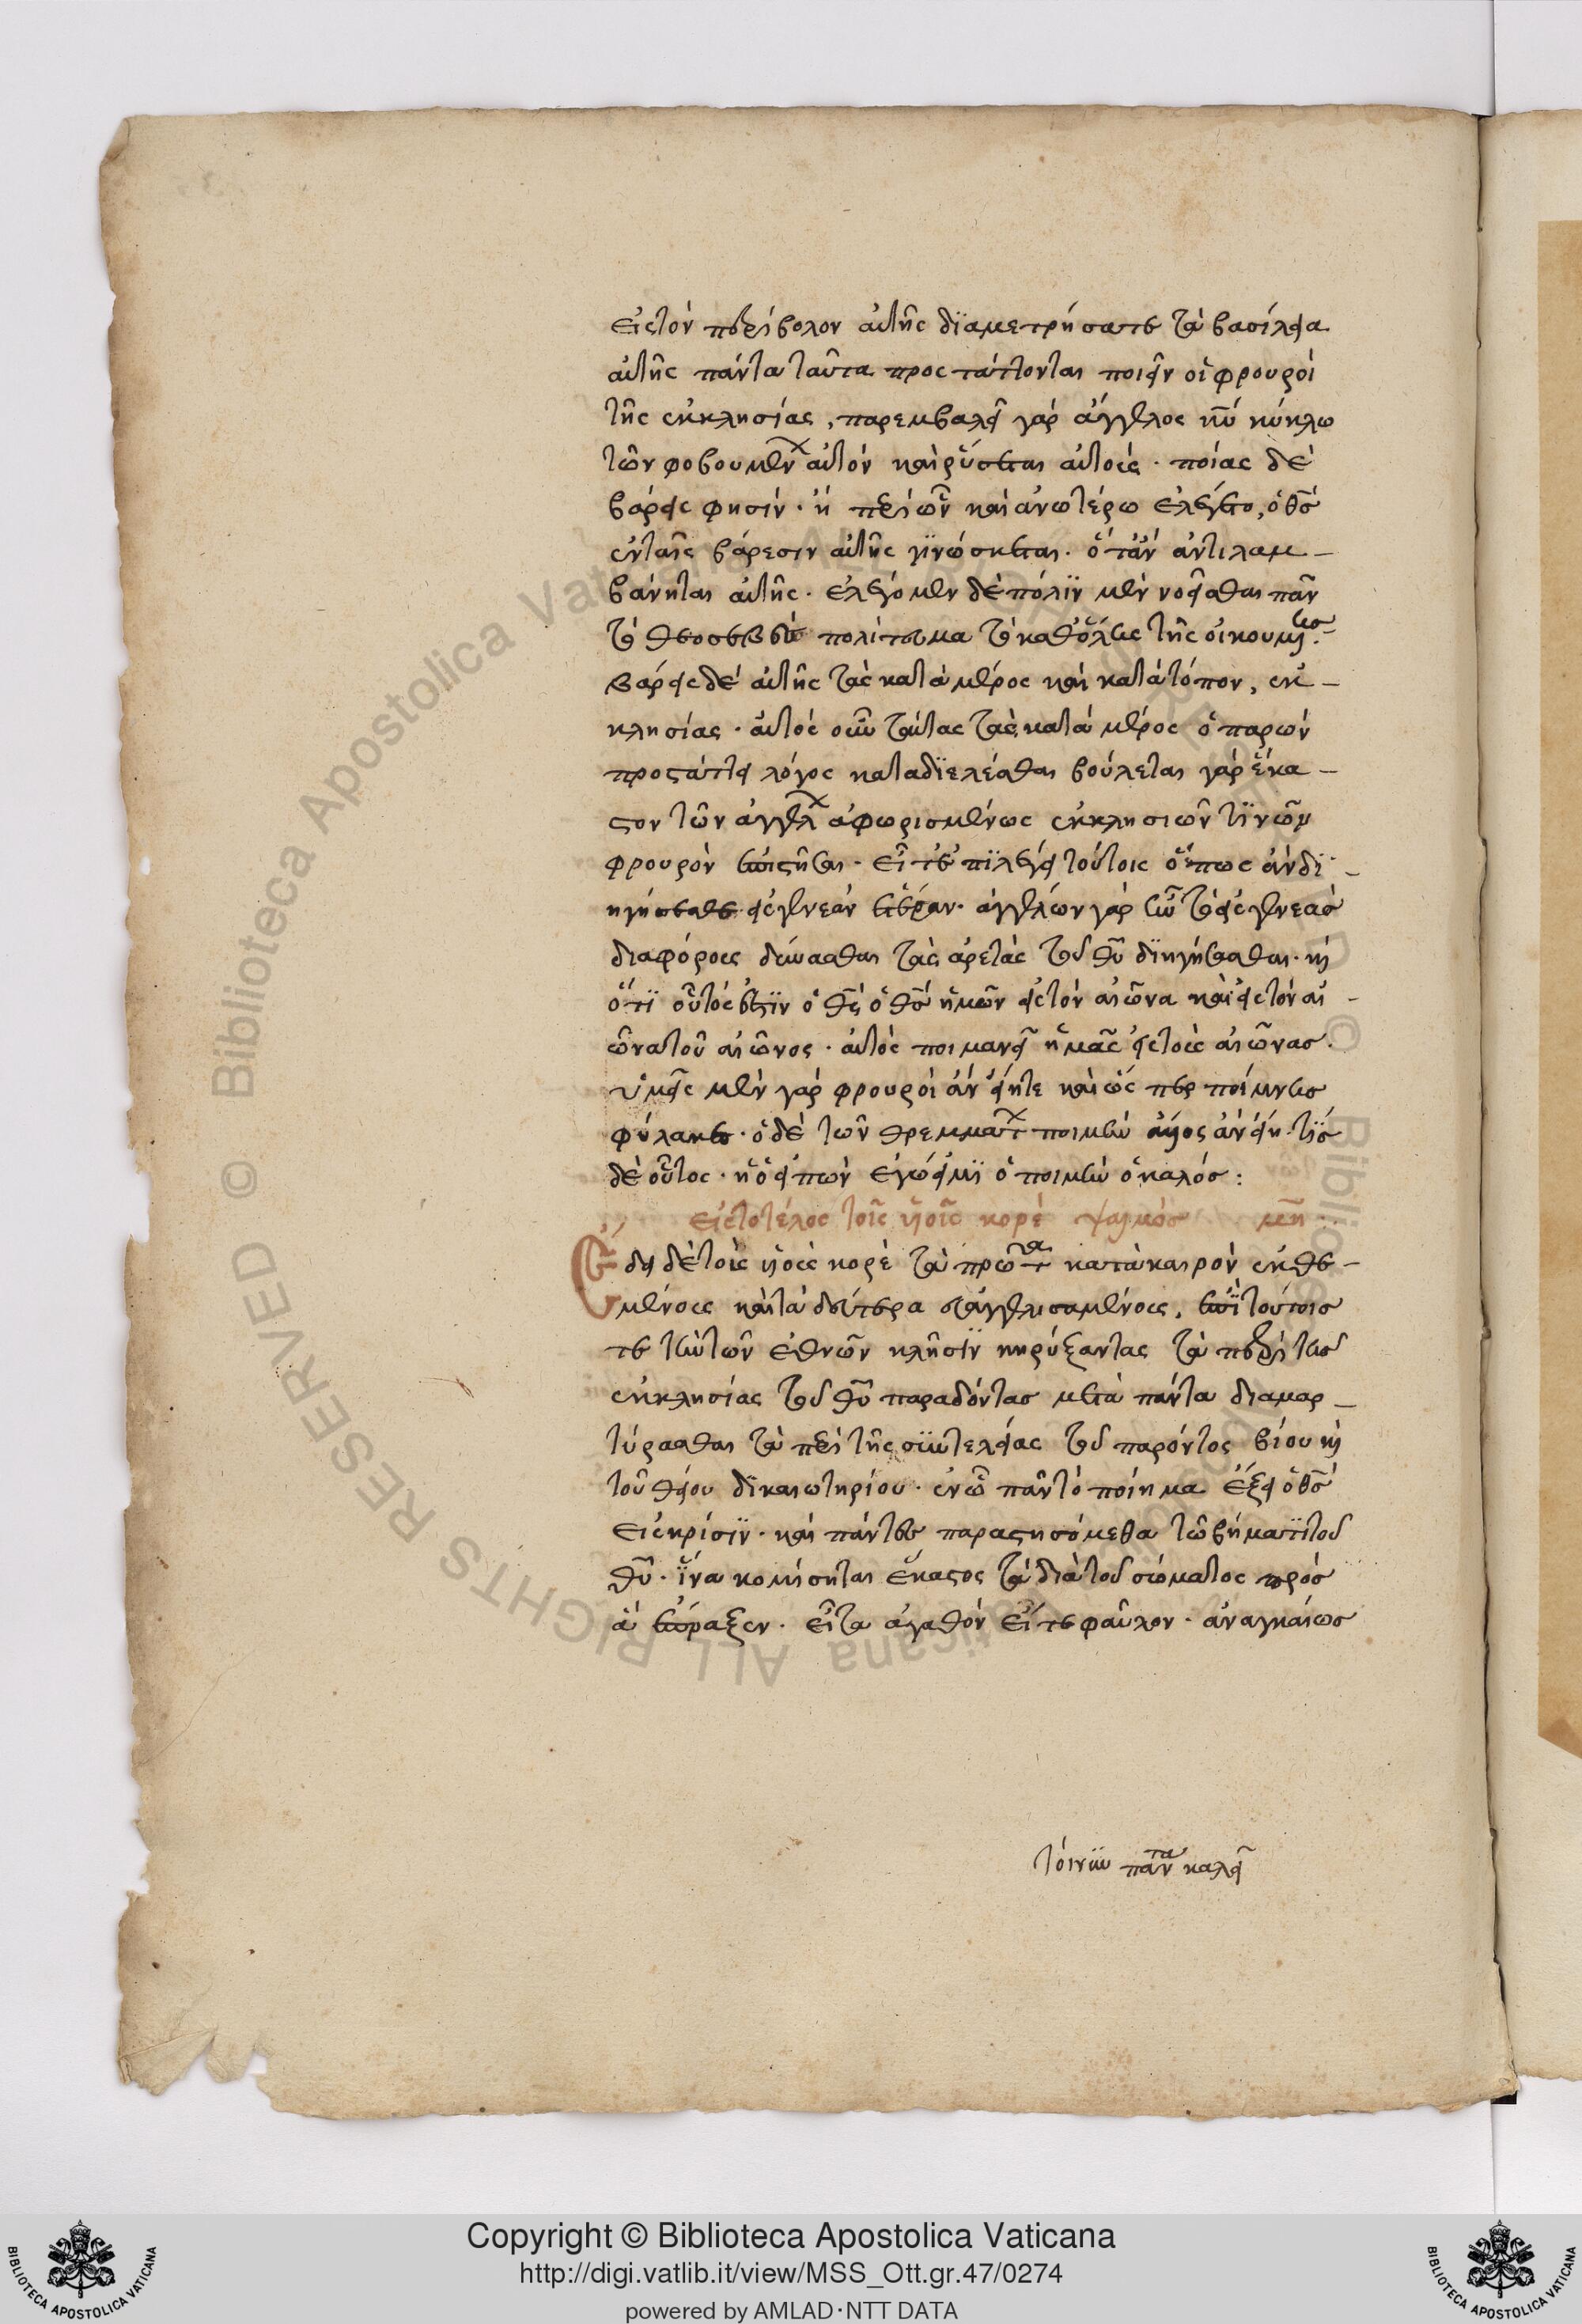 εἰς τὸν περίβολον αὐτῆς διαμετρήσατε τὰ βασίλεια
αὐτῆς πάντα ταῦτα προστάττονται ποιεῖν οἱ φρουροὶ
τῆς ἐκκλησίας, παρεμβαλεῖ γὰρ ἄγγελος κ̅υ̅ κύκλω
τῶν φοβουμένων αὐτὸν καὶ ῥύσεται αὐτούς · ποίας δὲ
βάρεις φησίν · ἢ περὶ ὧν καὶ ἀνωτέρω ἐλέγετο, ὁ θ̅σ̅
ἐν ταῖς βάρεσιν αὐτῆς γϊνώσκεται · ὅταν ἀντιλαμ–
βάνηται αὐτῆς · ἐλέγομεν δὲ πόλϊν μὲν νοεῖσθαι πᾶν
τὸ θεοσεβὲς πολίτευμα τὸ καθόλης τῆς οἰκουμένης ·
βάρεις δὲ αὐτῆς τὰς κατὰ μέρος καὶ κατὰ τόπον, ἐκ–
κλησίας · αὐτὸς οὖν ταύτας τὰς κατὰ μέρος ὁ παρὼν
προστάττει λόγος καταδϊελέσθαι βούλεται γὰρ ἕκα–
στον τῶν ἀγγέλων ἀφωρισμένως ἐκκλησιῶν τϊνῶν
φρουρὸν ἐπιστῆσαι · εἶτ' ἐπϊλέγει τούτοις ὅπως ἂν δϊ–
ηγήσησθε εἰς γενεὰν ἑτέραν · ἀγγέλων γὰρ ἦν τὸ εἰς γενεὰσ
διαφόρους δύνασθαι τὰς ἀρετὰς τοῦ θ̅υ̅ διηγήσασθαι · καὶ
ὅτϊ οὗτός ἐστϊν ὁ θ̅ς̅ ὁ θ̅σ̅ ἡμῶν εἰς τὸν αἰῶνα καὶ εἰς τὸν αἰ–
ῶνα τοῦ αἰῶνος · αὐτὸς ποιμανεῖ ἡμᾶς εἰς τοὺς αἰῶνασ.
ὑμεῖς μὲν γὰρ φρουροὶ ἂν εἴητε καὶ ὥσπερ ποίμνησ
φύλακες · ὁ δὲ τῶν θρεμμάτων ποιμὴν ἄλλος ἂν εἴη · τίσ
δὲ οὗτος · ἢ ὁ εἰπὼν ἐγώ εἰμϊ ὁ ποιμὴν ὁ καλόσ :
εἰς τὸ τέλος τοῖς υἱοῖς κορὲ ψαλμόσ μη :
Ἔδει δὲ τοὺς υἱοὺς κορὲ τὰ πρῶτα κατὰ καιρὸν ἐκθε–
μένους καὶ τὰ δεύτερα εὐαγγελισαμένους, ἐπὶ τούτοισ
τε τὴν τῶν ἐθνῶν κλῆσϊν κηρύξαντας τὰ περὶ τῆσ
ἐκκλησίας τοῦ θ̅υ̅ παραδόντασ μετὰ πάντα διαμαρ–
τύρασθαι τὰ περὶ τῆς συντελείας τοῦ παρόντος βίου καὶ
τοῦ θείου δϊκαιωτηρίου · ἐν ὧ πᾶν τὸ ποίημα ἄξει ὁ θ̅σ̅
εἰς κρίσϊν · καὶ πάντες παραστησόμεθα τῶ βήματϊ τοῦ
θ̅υ̅ · ἵνα κομίσηται ἕκαστος τὰ διὰ τοῦ σώματος πρὸσ
ἃ ἔπραξεν · εἴτα ἀγαθὸν εἴτε φαῦλον · ἀναγκαίωσ
τοίνυν πάντα καλεῖ
Copyright © Biblioteca Apostolica Vaticana
http://digi.vatlib.it/view/MSS_Ott.gr.47/0274
powered by AMLAD·NTT DATA